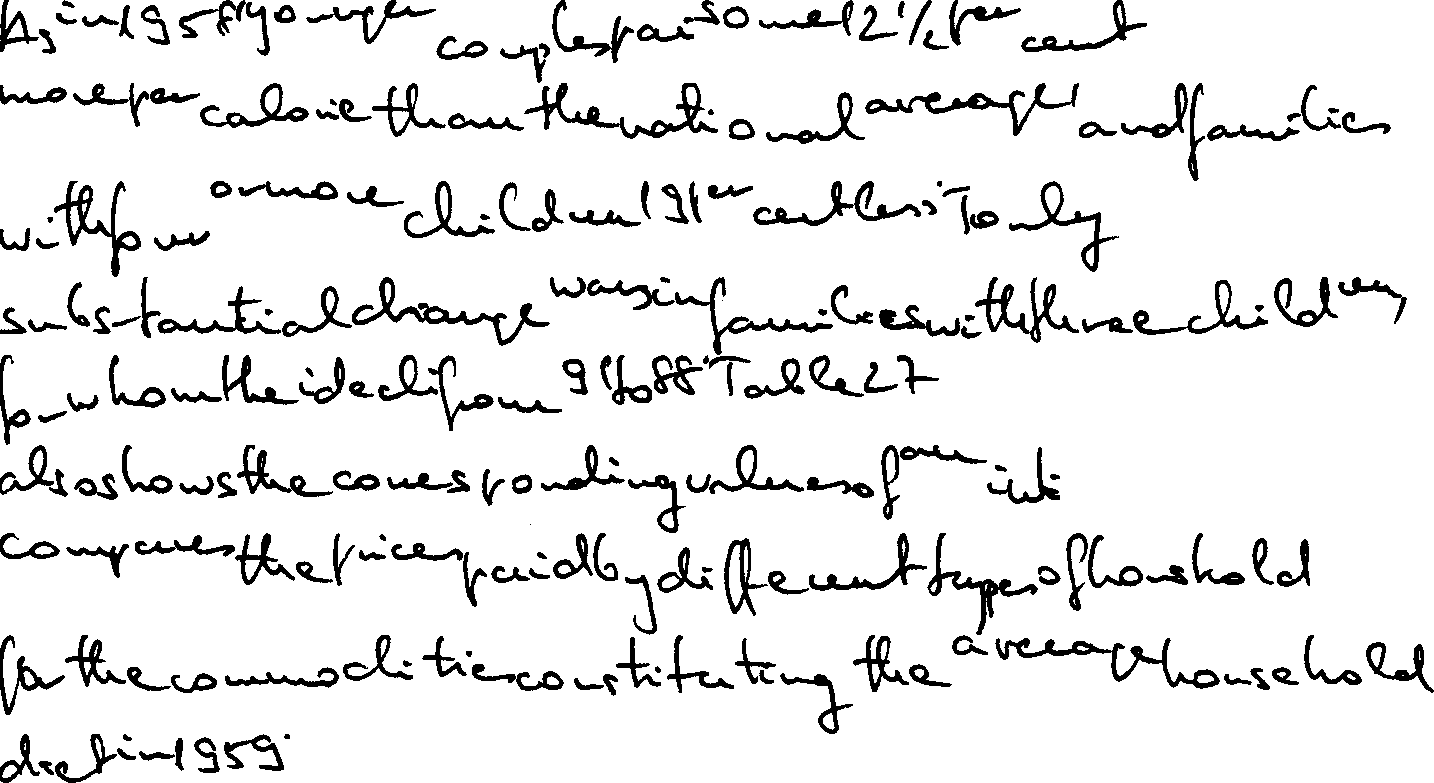 As in 1958 younger couples paid some 12 1/2 per cent
more per calorie than the national average, and families
with four or more children 19 per cent less. To only
substantial change was in families with three children,
for whom the ide cli from 91 to 88. Table 27
also shows the corresponding values of an inte
compares the prices paid by different types of household
for the commodities constituting the average household
diet in 1959.